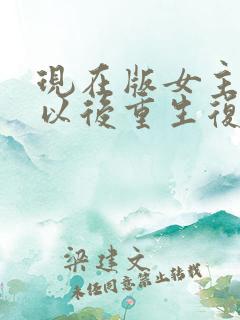 現在版女主
以後重生復
梁建文
未经同意禁止转载